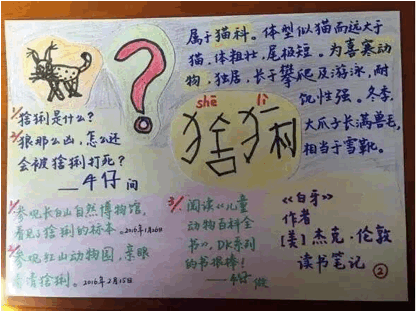 1/猞猁是什么?
2/狼那么凶,怎么还
会被猞猁打死?
——牛仔 问
属于猫科。体型似猫而远大于
猫,体粗壮,尾极短。为喜寒动
物,独居,长于攀爬及游泳,耐
饥性强。冬季,
大爪子长满兽毛,
相当于雪靴。
shē lì
猞猁
1/参观长白山自然博物馆,
看见了猞猁的标本。2016年1月26日
2/参观红山动物园,亲眼
看清猞猁。2016年2月15日
3/阅读《儿童
动物百科全
书》,DK系列
的书很棒!
——牛仔 做
《白牙》
作者
[美]杰克·伦敦
读书笔记
②